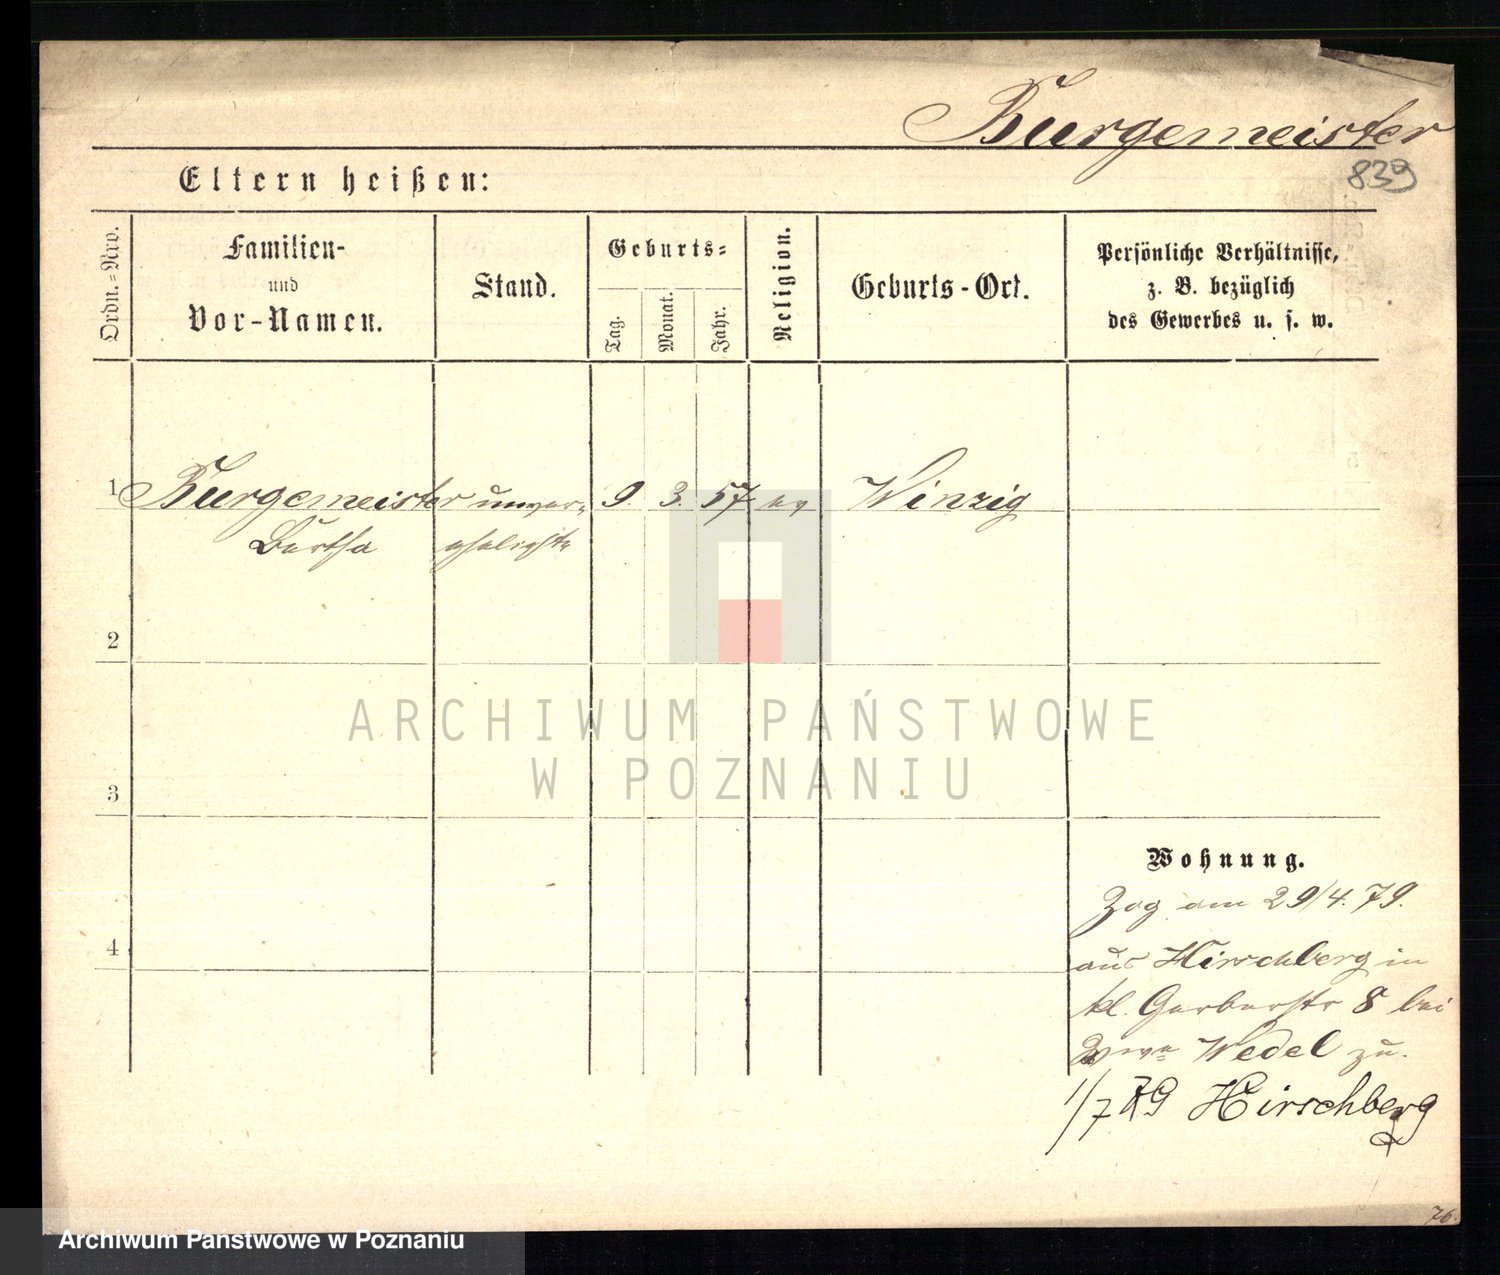 Burgemeister
839
Eltern heißen:
Ordn.-Nro.
Familien-
und
Vor-Namen.
Stand.
Geburts-
Tag.
Monat.
Jahr.
Religion.
Geburts-Ort.
Persönliche Verhältnisse,
z. B. bezüglich
des Gewerbes u. s. w.
1 Burgemeister unver- 9. 3. 57 ev Winzig
Bertha ehelichte
2
3
4
ARCHIWUM PAŃSTWOWE
W POZNANIU
Wohnung.
Zog am 29/4.79.
aus Hirschberg in
kl. Gerberstr 8 bei
Wwe Wedel zu.
1/7 79 Hirschberg
76
Archiwum Państwowe w Poznaniu